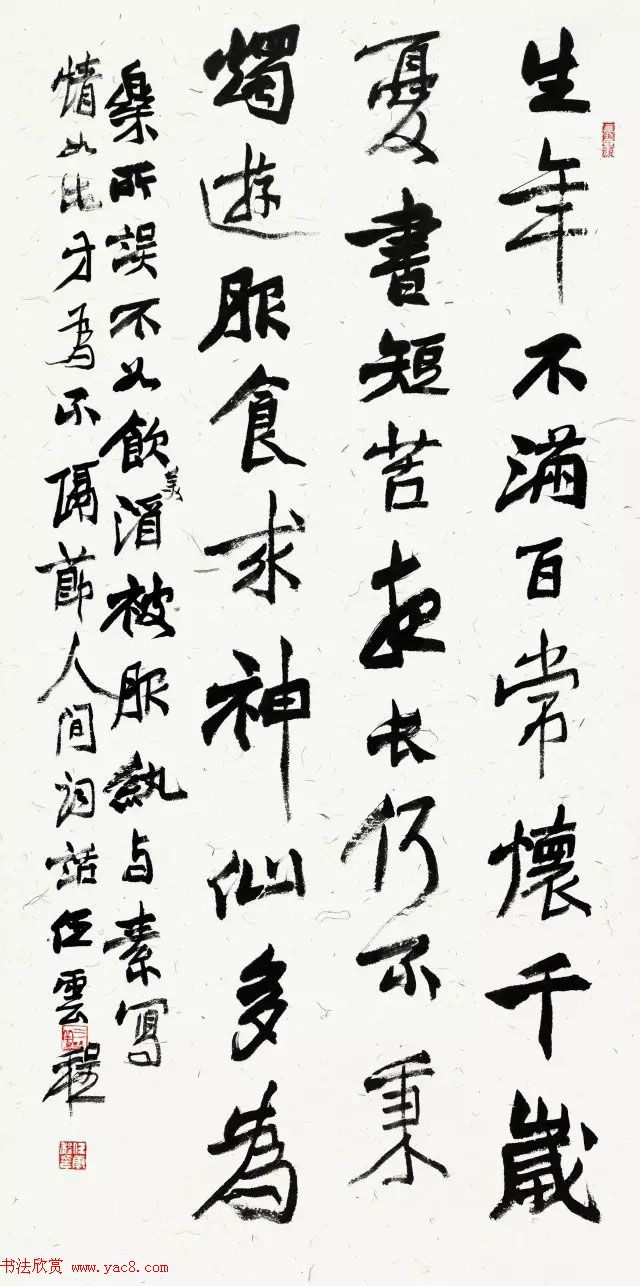 生年不滿百常懷千歲
憂書短苦夜长何不秉
燭遊服食求神仙多為
樂所誤不如飲美酒被服紈与素寫
情如此方為不隔節人间词话任雲程
书法欣赏 www.yac8.com